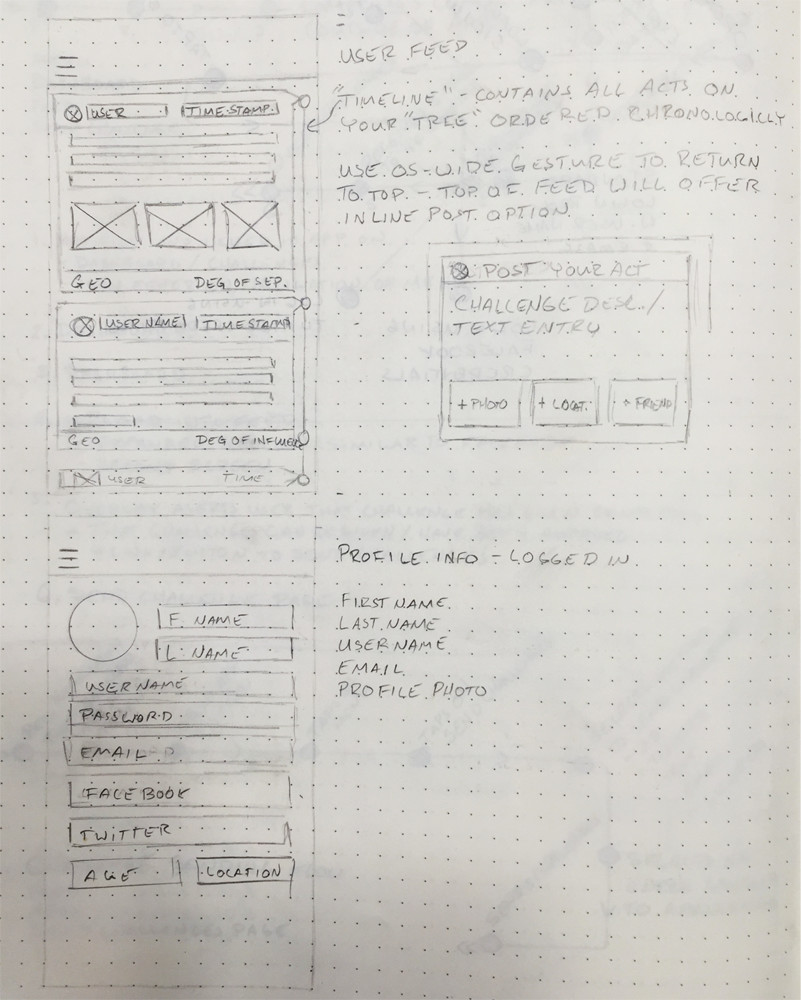 USER FEED
USER
TIMESTAMP.
GEO
DEG. OF SEP.
USER NAME
TIMESTAMP
GEO
DEG OF INFLUENCE
USER
TIME
"TIMELINE" - CONTAINS ALL ACTS ON
YOUR "TREE" ORDERED CHRONOLOGICLLY
USE OS-WIDE GESTURE TO RETURN
TO TOP - TOP OF FEED WILL OFFER
INLINE POST OPTION
POST YOUR ACT
CHALLENGE DESC./
TEXT ENTRY
+ PHOTO
+ LOCAT.
+ FRIEND
PROFILE INFO - LOGGED IN
F. NAME
L. NAME
USERNAME
PASSWORD
EMAIL
FACEBOOK
TWITTER
AGE
LOCATION
FIRST NAME
LAST NAME
USERNAME
EMAIL
PROFILE PHOTO